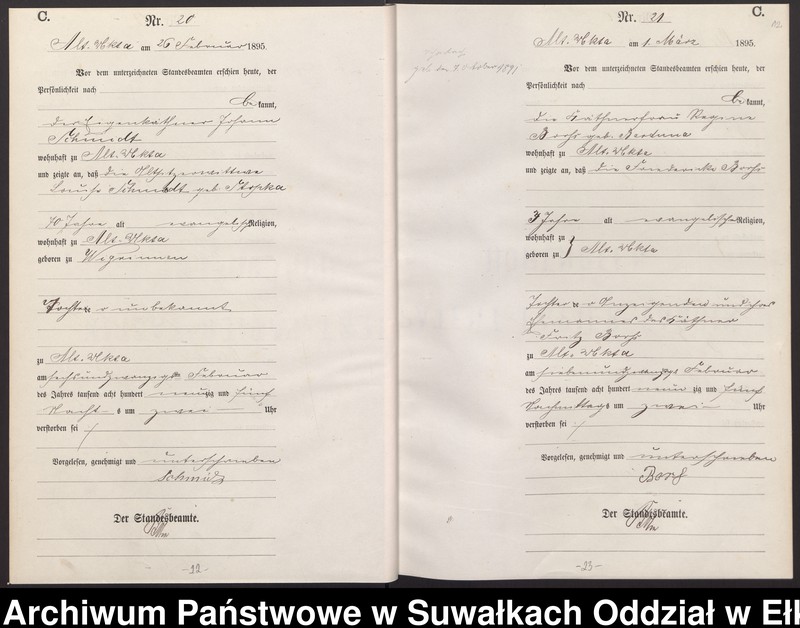 C.
Nr. 20
Alt. Ukta am 26 Februar 1895.
Vor dem unterzeichneten Standesbeamten erschien heute, der
Persönlichkeit nach
be kannt,
der Eigenkäthner Johann
Schmidt
wohnhaft zu Alt. Ukta
und zeigte an, daß die Altsitzerwittwe
Louise Schmidt geb
70 Jahre alt evangelisch Religion,
wohnhaft zu Alt. Ukta
geboren zu
Tochter unbekannt
zu Alt. Ukta
am sechsundzwanzigs Februar
des Jahres tausend acht hundert neunzig und fünf
Nacht s um zwei Uhr
verstorben sei
Vorgelesen, genehmigt und unterschrieben
Schmidt
Der Standesbeamte.
-12-
C.
Nr. 21
Alt. Ukta am 1. März 1895.
Vor dem unterzeichneten Standesbeamten erschien heute, der
Persönlichkeit nach
be kannt,
die Käthnerfrau Regine
geb.
wohnhaft zu Alt. Ukta
und zeigte an, daß die Friedericke
3 Jahre alt evangelische Religion,
wohnhaft zu
geboren zu } Alt. Ukta
Tochter Anzeigenden und ihres
Ehemannes des Käthner
Fritz
zu Alt. Ukta
am siebenundzwanzigs Februar
des Jahres tausend acht hundert neun zig und fünf
Nachmittags um zwei Uhr
verstorben sei
Vorgelesen, genehmigt und unterschrieben
Der Standesbeamte.
-23-
Archiwum Państwowe w Suwałkach Oddział w Ełk